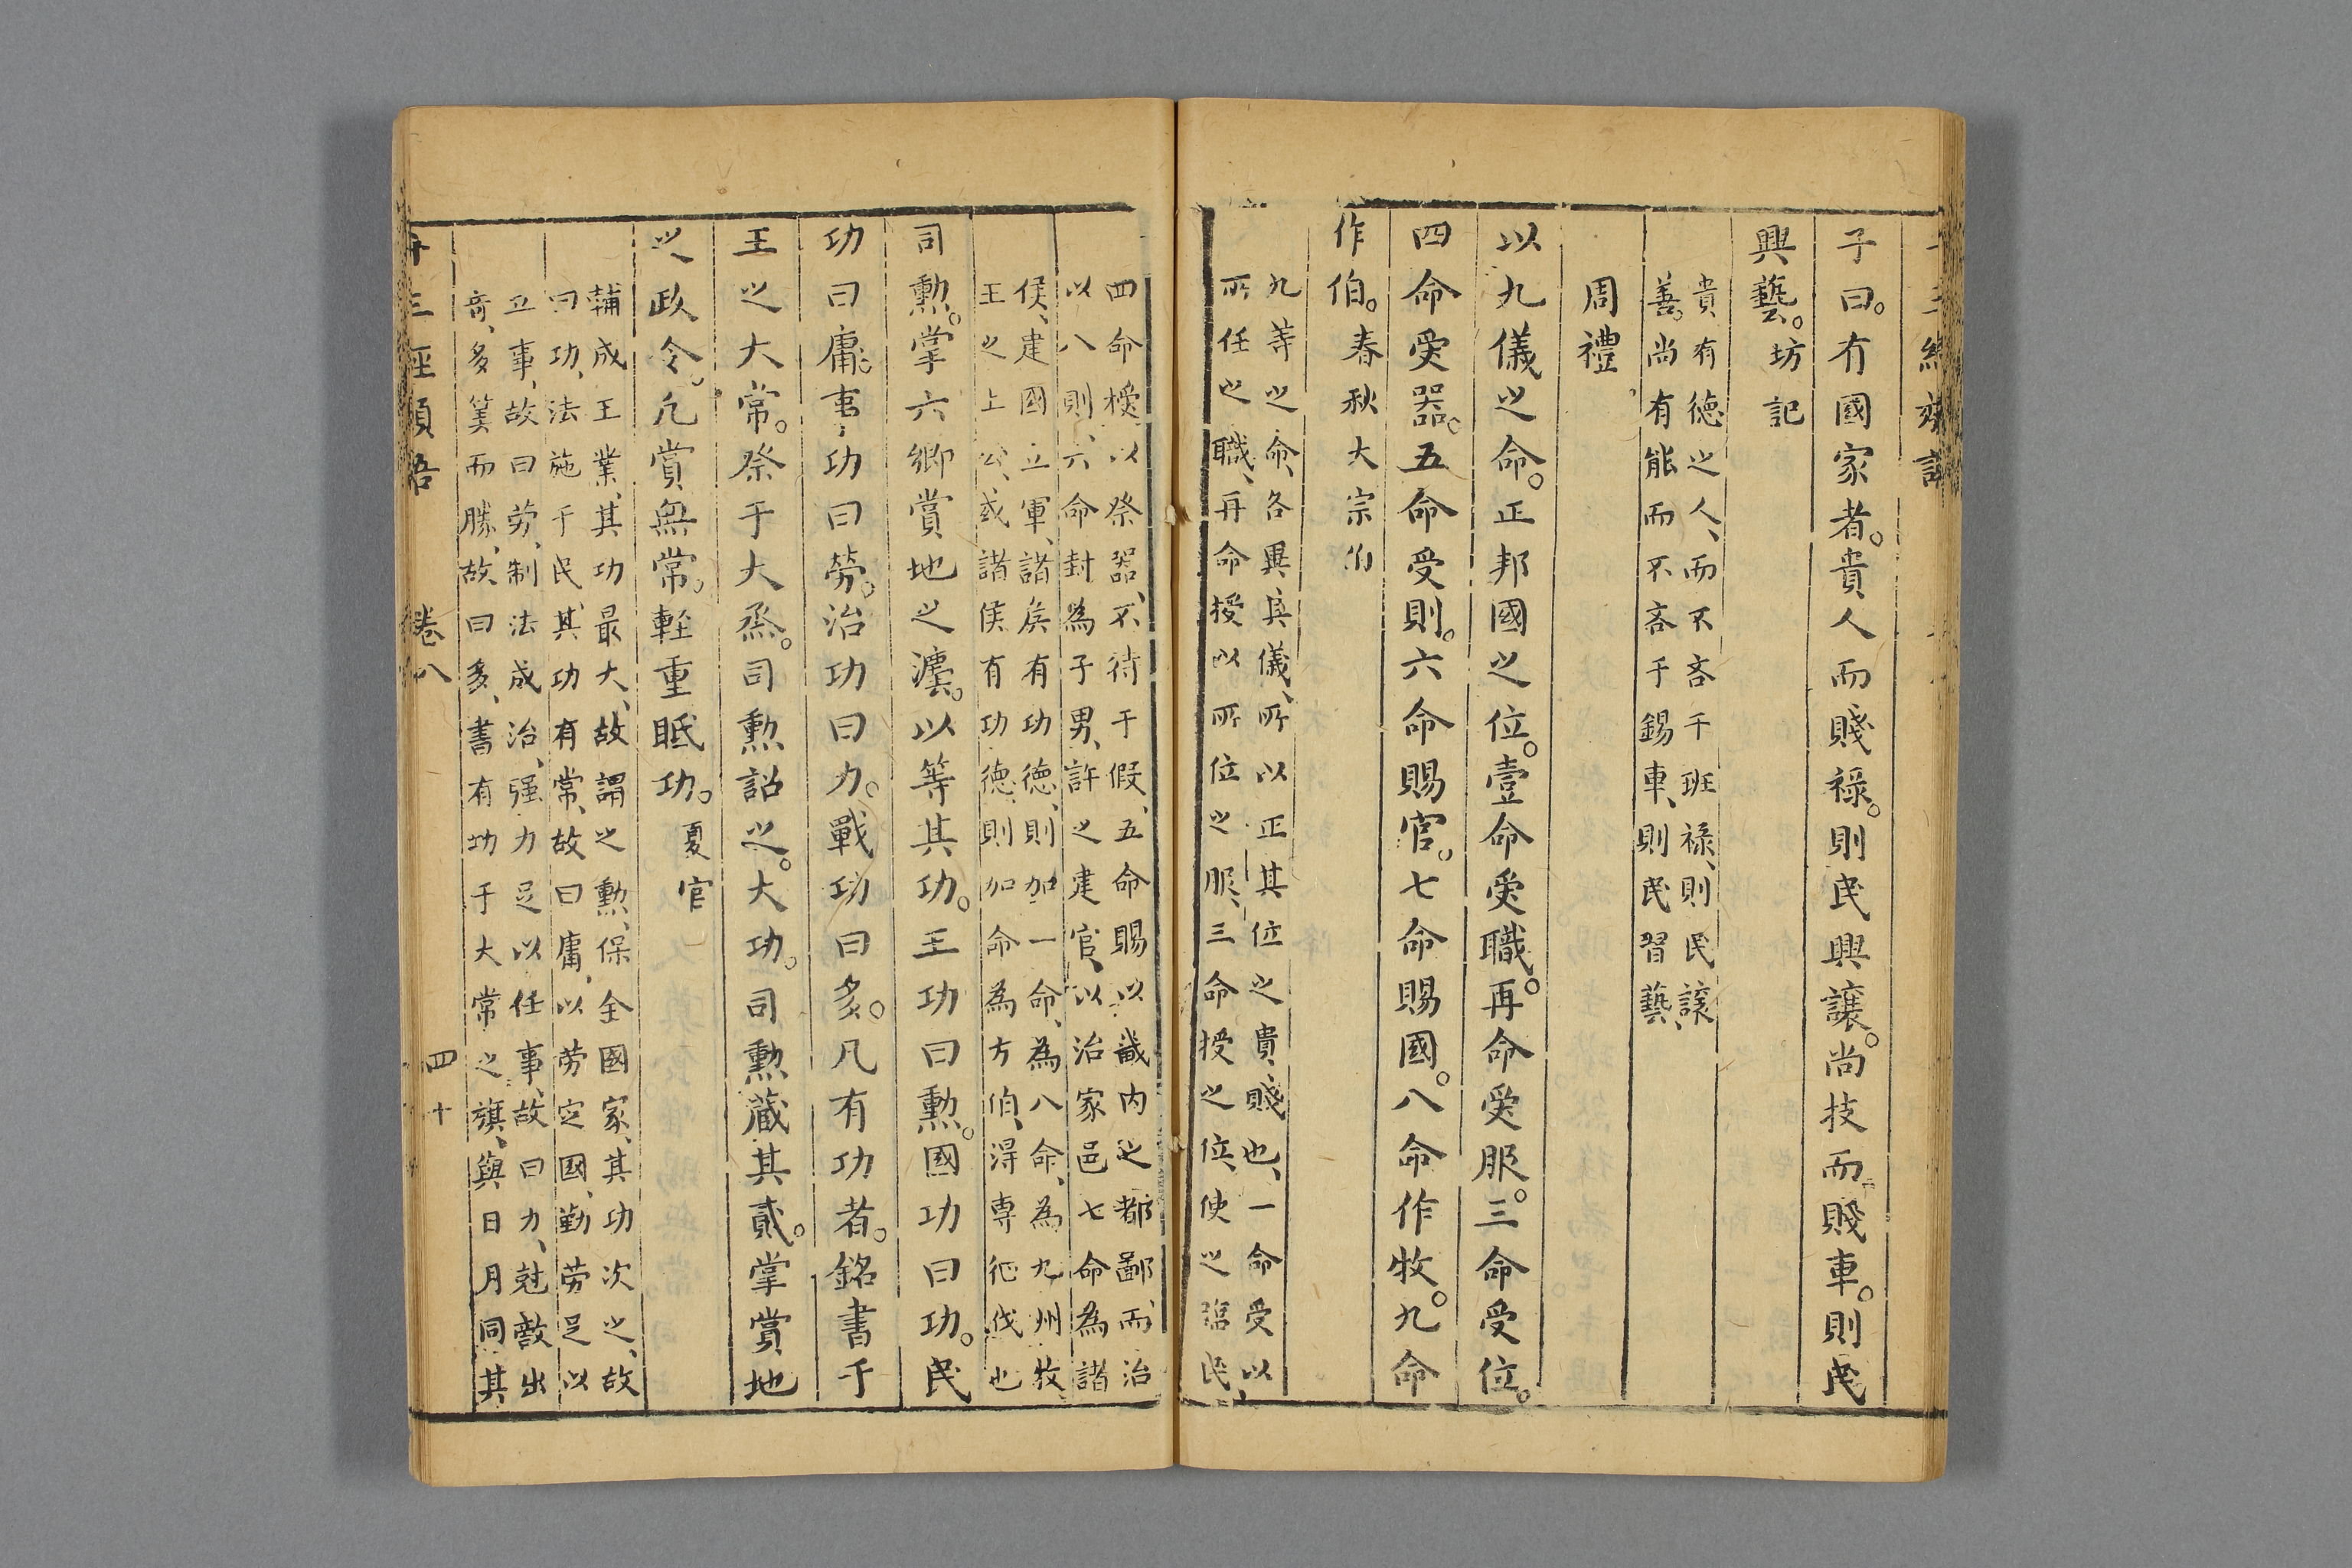 子曰。有國家者。貴人而賤祿。則民興讓。尚技而賤車。則民
興藝。坊記
貴有德之人、而不吝于班祿、則民讓
善。尚有能而不吝于錫車、則民習藝、
周禮
以九儀之命。正邦國之位。壹命受職。再命受服。三命受位。
四命受器。五命受則。六命賜官。七命賜國。八命作牧。九命
作伯。春秋大宗伯
九等之命、各異其儀、所以正其位之貴、賤也、一命受以
所任之職、再命授以所位之服、三命授之位、使之臨民、
四命授以祭器、不待于假、五命賜以畿内之都鄙、而治
以八則、六命封為子男、許之建官、以治家邑七命為諸
侯、建國立軍、諸侯有功德、則加一命、為八命、為九州牧、
王之上公、或諸侯有功德、則加命為方伯、得專征伐也
司勲。掌六鄉賞地之灋。以等其功。王功曰勲。國功曰功。民
功曰庸。事功曰勞。治功曰力。戰功曰多。凡有功者。銘書于
王之大常。祭于大烝。司勲詔之。大功。司勲藏其貳。掌賞地
之政令。凡賞無常。輊重眡功。夏官
輔成王業、其功最大、故謂之勲、保全國家、其功次之、故
曰功、法施于民、其功有常、故曰庸、以勞定國、勤勞足以
立事、故曰勞、制法成治、强力足以任事、故曰力、尅敵出
奇、多筭而勝、故曰多、書有功于大常之旗、與日月同其
卷八
四十